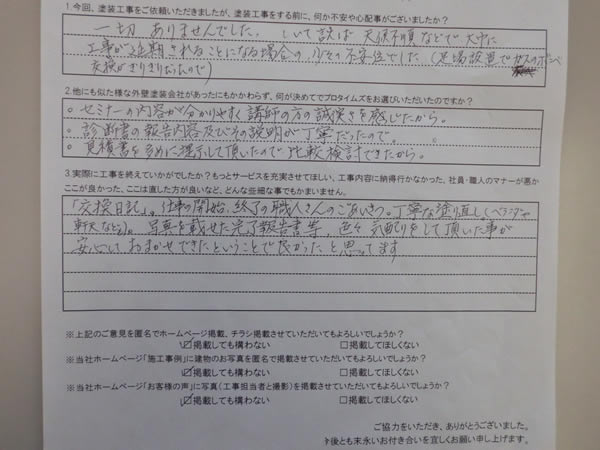 1.今回、塗装工事をご依頼いただきましたが、塗装工事をする前に、何か不安や心配事がございましたか?
一切 ありませんでした。しいて言えば 天候不順などで 大巾に
工事が延期されることになる場合の、少々の不安位でした (足場設置でガスのボンベ
交換がぎりぎりだったので)
2.他にも似た様な外壁塗装会社があったにもかかわらず、何が決めてでプロタイムズをお選びいただいたのですか?
○ セミナーの内容が分かりやすく講師の方の誠実さを感じたから。
○ 診断書の報告内容及びその説明が丁寧だったので。
○ 見積書を多めに提示して頂いたので比較検討できたから。
3.実際に工事を終えていかがでしたか?もっとサービスを充実させてほしい、工事内容に納得行かなかった、社員・職人のマナーが悪か
ここが良かった、ここは直した方が良いなど、どんな些細な事でもかまいません。
「交換日記」。仕事の開始、終了の職人さんのごあいさつ。丁寧な塗り直し(ベランダや
軒天など)。写真を載せた完了報告書等、色々 気配りをして頂いた事が
安心して おまかせできたということで良かったと思ってます
※上記のご意見を匿名でホームページ掲載、チラシ掲載させていただいてもよろしいでしょうか?
☑掲載しても構わない □掲載してほしくない
※当社ホームページ「施工事例」に建物のお写真を匿名で掲載させていただいてもよろしいでしょうか?
☑掲載しても構わない □掲載してほしくない
※当社ホームページ「お客様の声」に写真(工事担当者と撮影)を掲載させていただいてもよろしいでしょうか?
☑掲載しても構わない □掲載してほしくない
ご協力をいただき、ありがとうございました。
今後とも末永いお付き合いを宜しくお願い申し上げます。